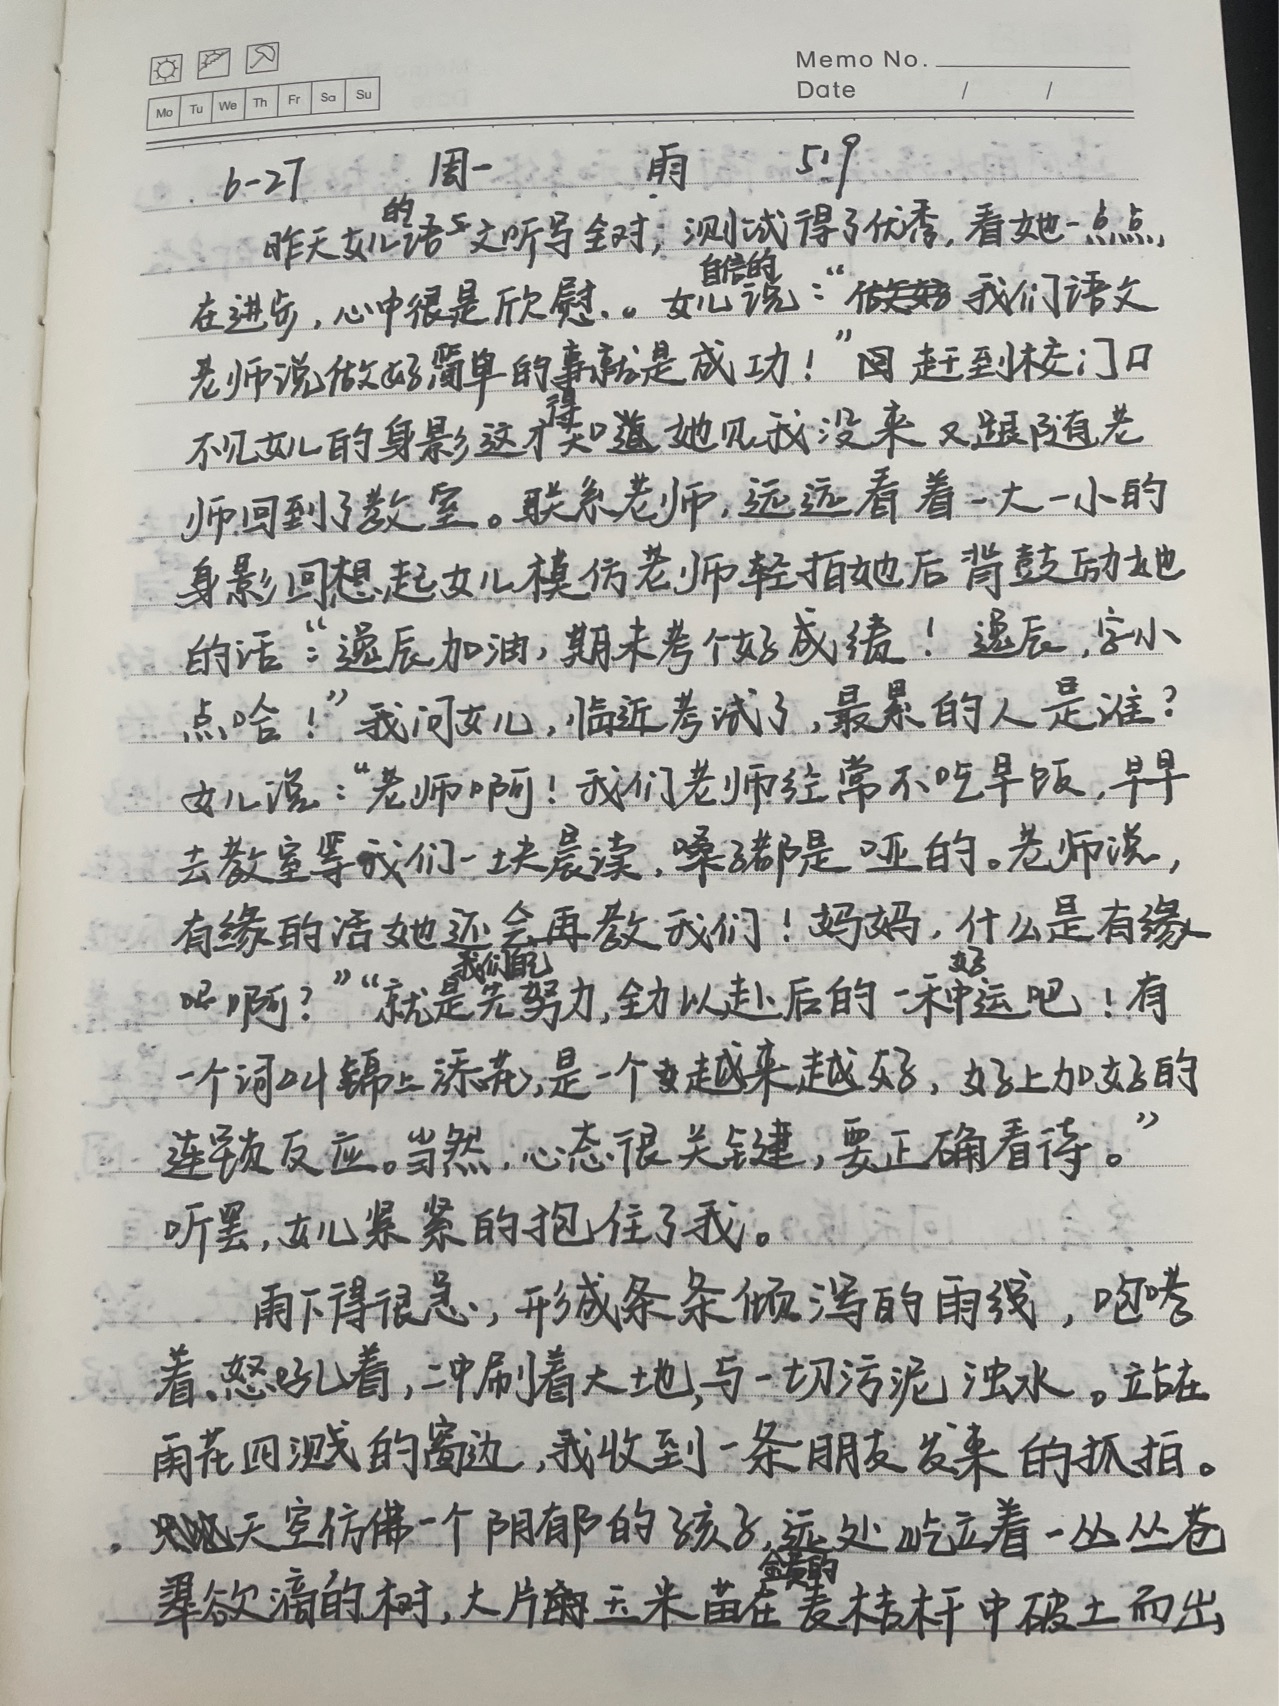 Memo No.
Mo Tu We Th Fr Sa Su
Date / /
6-27 周一 雨 5:19
昨天女儿的语文听写全对,测试得了优秀,看她一点点,
在进步,心中很是欣慰。女儿自信的说:“我们语文
老师说做好简单的事就是成功!”赶到校门口
不见女儿的身影这才得知道她见我没来又跟随老
师回到了教室。联系老师,远远看着一大一小的
身影回想起女儿模仿老师轻拍她后背鼓励她
的话:“逸辰加油,期末考个好成绩!逸辰,字小
点哈!”我问女儿,临近考试了,最累的人是谁?
女儿说:“老师啊!我们老师经常不吃早饭,早早
去教室等我们一块晨读,嗓子都是哑的。老师说,
有缘的话她还会再教我们!妈妈,什么是有缘
啊?”“就是我们自己先努力,全力以赴后的一种好运吧!有
一个词叫锦上添花,是一个越来越好,好上加好的
连锁反应。当然,心态很关键,要正确看待。”
听罢,女儿紧紧的抱住了我。
雨下得很急,形成条条倾泻的雨线,咆哮
着、怒吼着,冲刷着大地,与一切污泥浊水。立站在
雨花四溅的窗边,我收到一条朋友发来的抓拍。
天空仿佛一个阴郁的孩子,远处屹立着一丛丛苍
翠欲滴的树,大片玉米苗在金黄的麦秸杆中破土而出,